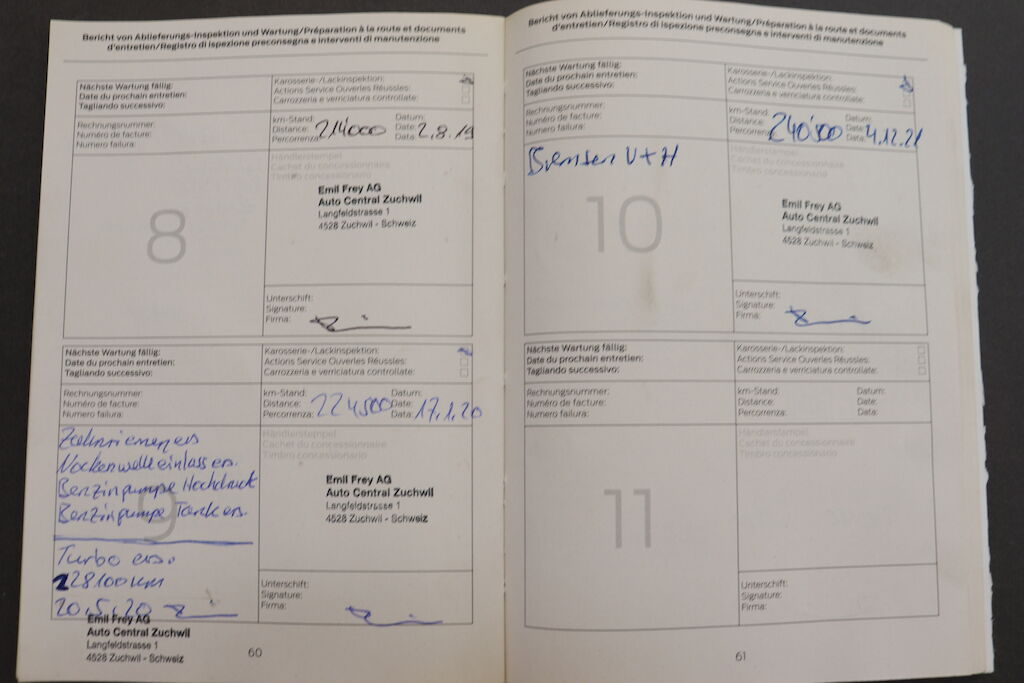 Bericht von Ablieferungs-Inspektion und Wartung/Préparation à la route et documents
d'entretien/Registro di ispezione preconsegna e interventi di manutenzione
Nächste Wartung fällig:
Date du prochain entretien:
Tagliando successivo:
Karosserie-/Lackinspektion:
Actions Service Ouvertes Réussies:
Carrozzeria e verniciatura controllate:
Rechnungsnummer:
Numéro de facture:
Numero failura:
km-Stand:
Distance: 214'000
Percorrenza:
Datum:
Date: 2.8.19
Data:
8
Händlerstempel
Cachet du concessionnaire
Timbro concessionario
Emil Frey AG
Auto Central Zuchwil
Langfeldstrasse 1
4528 Zuchwil - Schweiz
Unterschift:
Signature:
Firma:
Nächste Wartung fällig:
Date du prochain entretien:
Tagliando successivo:
Karosserie-/Lackinspektion:
Actions Service Ouvertes Réussies:
Carrozzeria e verniciatura controllate:
Rechnungsnummer:
Numéro de facture:
Numero failura:
km-Stand:
Distance: 224'500
Percorrenza:
Datum:
Date:
Data: 17.1.20
Zahnriemen ers
Nockenwelle einlass ers.
Benzinpumpe Hochdruck
Benzinpumpe Tank ers.
9
Turbo ers.
228100 km
20.5.20
Emil Frey AG
Auto Central Zuchwil
Langfeldstrasse 1
4528 Zuchwil - Schweiz
Händlerstempel
Cachet du concessionnaire
Timbro concessionario
Emil Frey AG
Auto Central Zuchwil
Langfeldstrasse 1
4528 Zuchwil - Schweiz
Unterschift:
Signature:
Firma:
60
Bericht von Ablieferungs-Inspektion und Wartung/Préparation à la route et documents
d'entretien/Registro di ispezione preconsegna e interventi di manutenzione
Nächste Wartung fällig:
Date du prochain entretien:
Tagliando successivo:
Karosserie-/Lackinspektion:
Actions Service Ouvertes Réussies:
Carrozzeria e verniciatura controllate:
Rechnungsnummer:
Numéro de facture:
Numero failura:
km-Stand:
Distance: 240'500
Percorrenza:
Datum:
Date: 4.12.21
Data:
Bremsen V+H
10
Händlerstempel
Cachet du concessionnaire
Timbro concessionario
Emil Frey AG
Auto Central Zuchwil
Langfeldstrasse 1
4528 Zuchwil - Schweiz
Unterschift:
Signature:
Firma:
Nächste Wartung fällig:
Date du prochain entretien:
Tagliando successivo:
Karosserie-/Lackinspektion:
Actions Service Ouvertes Réussies:
Carrozzeria e verniciatura controllate:
Rechnungsnummer:
Numéro de facture:
Numero failura:
km-Stand:
Distance:
Percorrenza:
Datum:
Date:
Data:
11
Händlerstempel
Cachet du concessionnaire
Timbro concessionario
Unterschift:
Signature:
Firma:
61